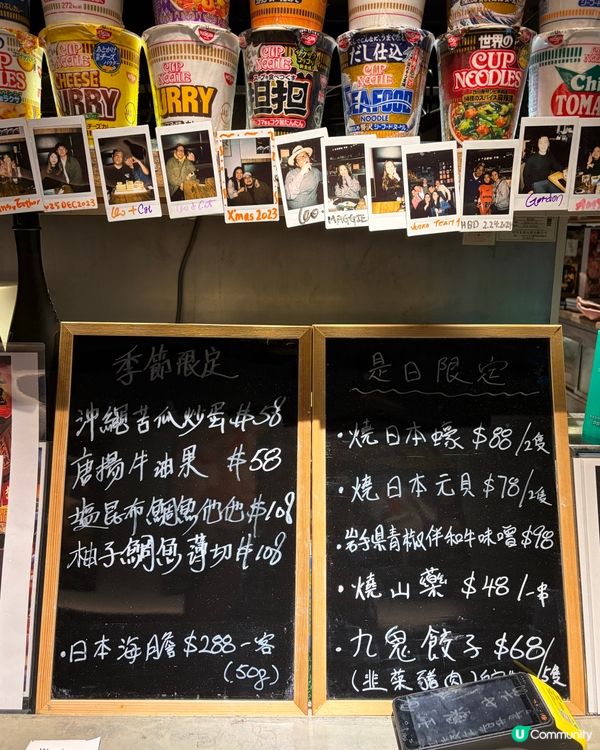 272kcal
CUP NOODLE
CHEESE
CURRY
CUP NOODLE
CURRY
CUP NOODLE
担担
だし仕込み
CUP NOODLE
SEAFOOD
NOODLE
世界の
CUP
NOODLES
TOMA
25 DEC 2023
Leo + Cat
Xmas 2023
Leo
MAGGIE
HBD 2.24.20
Gordon
季節限定
沖繩苦瓜炒蛋 $58
唐揚牛油果 $58
塩昆布鯛魚他他 $108
柚子鯛魚薄切 $108
·日本海膽 $288一客
(50g)
是日限定
·燒日本蠔 $88/2隻
·燒日本元貝 $78/2隻
·岩手県青椒伴和牛味噌 $98
·燒山藥 $48/一串
·九鬼餃子 $68/
(韭菜豬肉) 5隻
U Community